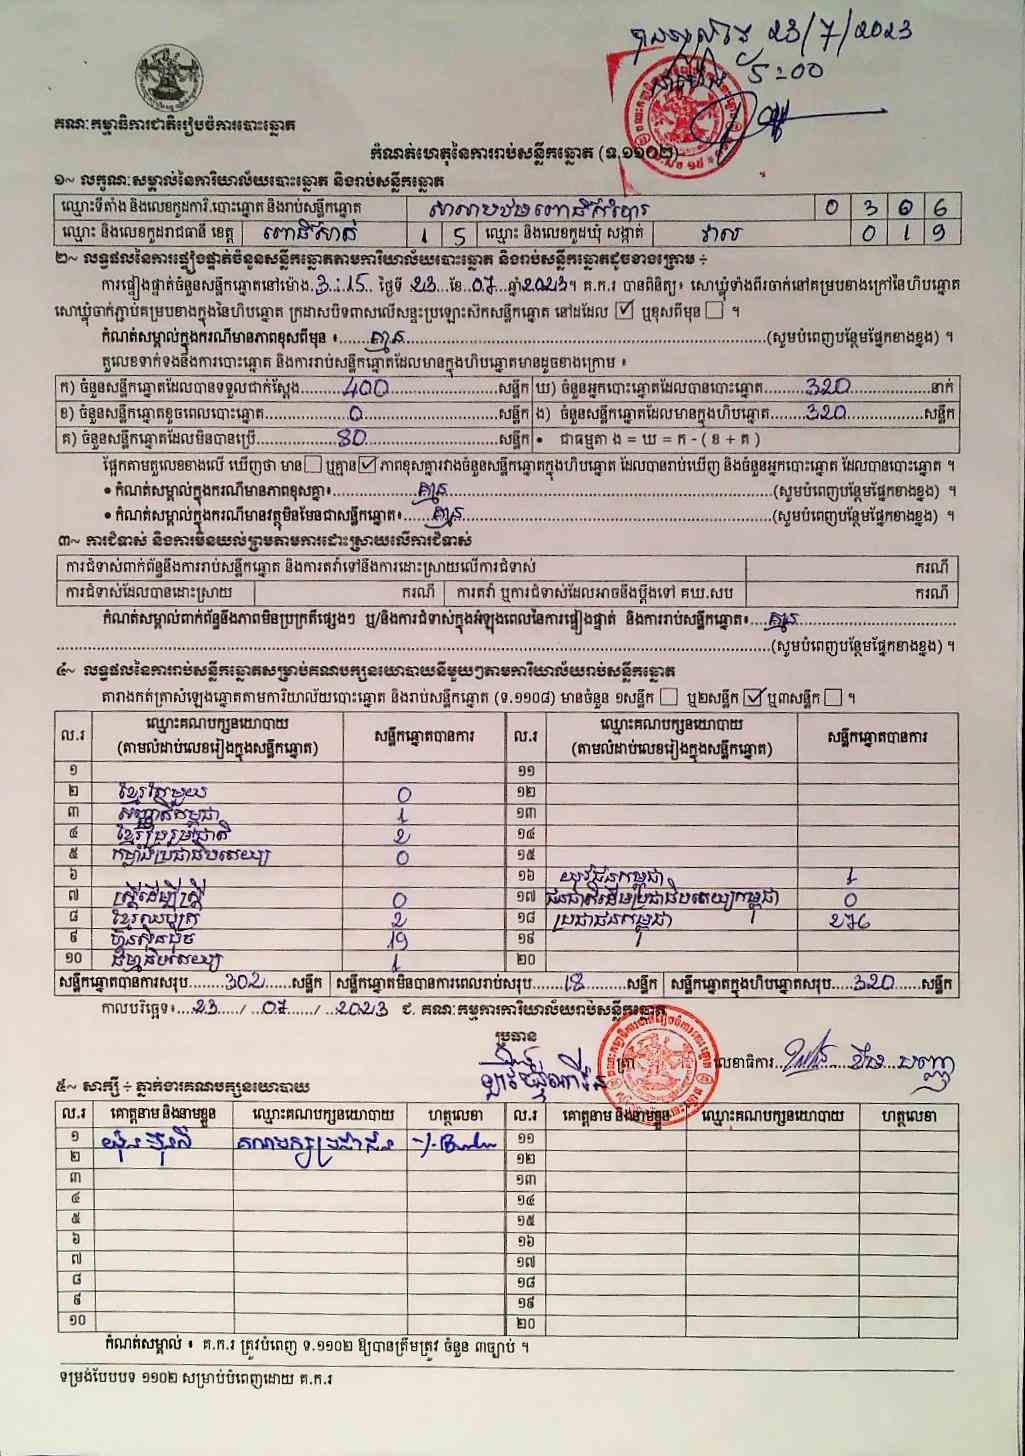 23/7/2023
គណៈកម្មាធិការជាតិរៀបចំការបោះឆ្នោត
កំណត់ហេតុនៃការរាប់សន្លឹកឆ្នោត (ទ.១១០២)
១~ លក្ខណៈសម្គាល់នៃការិយាល័យបោះឆ្នោត និងរាប់សន្លឹកឆ្នោត
ឈ្មោះទីតាំង និងលេខកូដការិ.បោះឆ្នោត និងរាប់សន្លឹកឆ្នោត សាលាបឋមពោធិ៍កំបោរ 0 3 0 6
ឈ្មោះ និងលេខកូដរាជធានី ខេត្ត ពោធិ៍សាត់ 1 5 ឈ្មោះ និងលេខកូដឃុំ សង្កាត់ វាល 0 1 9
២~ លទ្ធផលនៃការផ្ទៀងផ្ទាត់ចំនួនសន្លឹកឆ្នោតតាមការិយាល័យបោះឆ្នោត និងរាប់សន្លឹកឆ្នោតដូចខាងក្រោម ÷
ការផ្ទៀងផ្ទាត់ចំនួនសន្លឹកឆ្នោតនៅម៉ោង.3:15.. ថ្ងៃទី .23...ខែ.07...ឆ្នាំ2023។ គ.ក.រ បានពិនិត្យ៖ សោឃ្លុំទាំងពីរចាក់នៅគម្របខាងក្រៅនៃហិបឆ្នោត
សោឃ្លុំចាក់ភ្ជាប់គម្របខាងក្នុងនៃហិបឆ្នោត ក្រដាសបិទពាសលើសន្ទះប្រឡោះស៊កសន្លឹកឆ្នោត នៅដដែល ☑ ឬខុសពីមុន ☐ ។
កំណត់សម្គាល់ក្នុងករណីមានភាពខុសពីមុន ៖......គ្មាន......(សូមបំពេញបន្ថែមផ្នែកខាងខ្នង) ។
តួលេខទាក់ទងនឹងការបោះឆ្នោត និងការរាប់សន្លឹកឆ្នោតដែលមានក្នុងហិបឆ្នោតមានដូចខាងក្រោម ៖
ក) ចំនួនសន្លឹកឆ្នោតដែលបានទទួលជាក់ស្តែង......400......សន្លឹក ឃ) ចំនួនអ្នកបោះឆ្នោតដែលបានបោះឆ្នោត......320......នាក់
ខ) ចំនួនសន្លឹកឆ្នោតខូចពេលបោះឆ្នោត......0......សន្លឹក ង) ចំនួនសន្លឹកឆ្នោតដែលមានក្នុងហិបឆ្នោត......320......សន្លឹក
គ) ចំនួនសន្លឹកឆ្នោតដែលមិនបានប្រើ......80......សន្លឹក • ជាធម្មតា ង = ឃ = ក - ( ខ + គ )
ផ្អែកតាមតួលេខខាងលើ ឃើញថា មាន ☐ ឬគ្មាន ☑ ភាពខុសគ្នារវាងចំនួនសន្លឹកឆ្នោតក្នុងហិបឆ្នោត ដែលបានរាប់ឃើញ និងចំនួនអ្នកបោះឆ្នោត ដែលបានបោះឆ្នោត ។
• កំណត់សម្គាល់ក្នុងករណីមានភាពខុសគ្នា៖......គ្មាន......(សូមបំពេញបន្ថែមផ្នែកខាងខ្នង) ។
• កំណត់សម្គាល់ក្នុងករណីមានវត្ថុមិនមែនជាសន្លឹកឆ្នោត៖......គ្មាន......(សូមបំពេញបន្ថែមផ្នែកខាងខ្នង) ។
៣~ ការជំទាស់ និងការមិនយល់ព្រមតាមការដោះស្រាយលើការជំទាស់
ការជំទាស់ពាក់ព័ន្ធនឹងការរាប់សន្លឹកឆ្នោត និងការតវ៉ាទៅនឹងការដោះស្រាយលើការជំទាស់ ករណី
ការជំទាស់ដែលបានដោះស្រាយ ករណី ការតវ៉ា ឬការជំទាស់ដែលអាចនឹងប្តឹងទៅ គឃ.សប ករណី
កំណត់សម្គាល់ពាក់ព័ន្ធនឹងភាពមិនប្រក្រតីផ្សេងៗ ឬ/និងការជំទាស់ក្នុងអំឡុងពេលនៃការផ្ទៀងផ្ទាត់ និងការរាប់សន្លឹកឆ្នោត៖....គ្មាន......
......(សូមបំពេញបន្ថែមផ្នែកខាងខ្នង) ។
៤~ លទ្ធផលនៃការរាប់សន្លឹកឆ្នោតសម្រាប់គណបក្សនយោបាយនីមួយៗតាមការិយាល័យរាប់សន្លឹកឆ្នោត
តារាងកត់ត្រាសំឡេងឆ្នោតតាមការិយាល័យបោះឆ្នោត និងរាប់សន្លឹកឆ្នោត (ទ.១១០៨) មានចំនួន ១សន្លឹក ☐ ឬ២សន្លឹក ☑ ឬ៣សន្លឹក ☐ ។
ល.រ ឈ្មោះគណបក្សនយោបាយ (តាមលំដាប់លេខរៀងក្នុងសន្លឹកឆ្នោត) សន្លឹកឆ្នោតបានការ ល.រ ឈ្មោះគណបក្សនយោបាយ (តាមលំដាប់លេខរៀងក្នុងសន្លឹកឆ្នោត) សន្លឹកឆ្នោតបានការ
១ ១១
២ ខ្មែរតែមួយ 0 ១២
៣ សញ្ជាតិកម្ពុជា 1 ១៣
៤ ខ្មែររួបរួមជាតិ 2 ១៤
៥ កម្លាំងប្រជាធិបតេយ្យ 0 ១៥
៦ ១៦ យុវជនកម្ពុជា 1
៧ ស្ត្រីដើម្បីស្ត្រី 0 ១៧ ជនជាតិដើមប្រជាធិបតេយ្យកម្ពុជា 0
៨ ខ្មែរឈប់ក្រ 2 ១៨ ប្រជាជនកម្ពុជា 276
៩ ហ៊្វុនស៊ិនប៉ិច 19 ១៩
១០ ធម្មាធិបតេយ្យ 1 ២០
សន្លឹកឆ្នោតបានការសរុប......302......សន្លឹក សន្លឹកឆ្នោតមិនបានការពេលរាប់សរុប......18......សន្លឹក សន្លឹកឆ្នោតក្នុងហិបឆ្នោតសរុប......320......សន្លឹក
កាលបរិច្ឆេទ៖...23..../...07....../...2023 ជ. គណៈកម្មការការិយាល័យរាប់សន្លឹកឆ្នោត
ប្រធាន
ត្រា លេខាធិការ
៥~ សាក្សី ÷ ភ្នាក់ងារគណបក្សនយោបាយ
ល.រ គោត្តនាម និងនាមខ្លួន ឈ្មោះគណបក្សនយោបាយ ហត្ថលេខា ល.រ គោត្តនាម និងនាមខ្លួន ឈ្មោះគណបក្សនយោបាយ ហត្ថលេខា
១ គណបក្សប្រជាជន ១១
២ ១២
៣ ១៣
៤ ១៤
៥ ១៥
៦ ១៦
៧ ១៧
៨ ១៨
៩ ១៩
១០ ២០
កំណត់សម្គាល់ ៖ គ.ក.រ ត្រូវបំពេញ ទ.១១០២ ឱ្យបានត្រឹមត្រូវ ចំនួន ៣ច្បាប់ ។
ទម្រង់បែបបទ ១១០២ សម្រាប់បំពេញដោយ គ.ក.រ